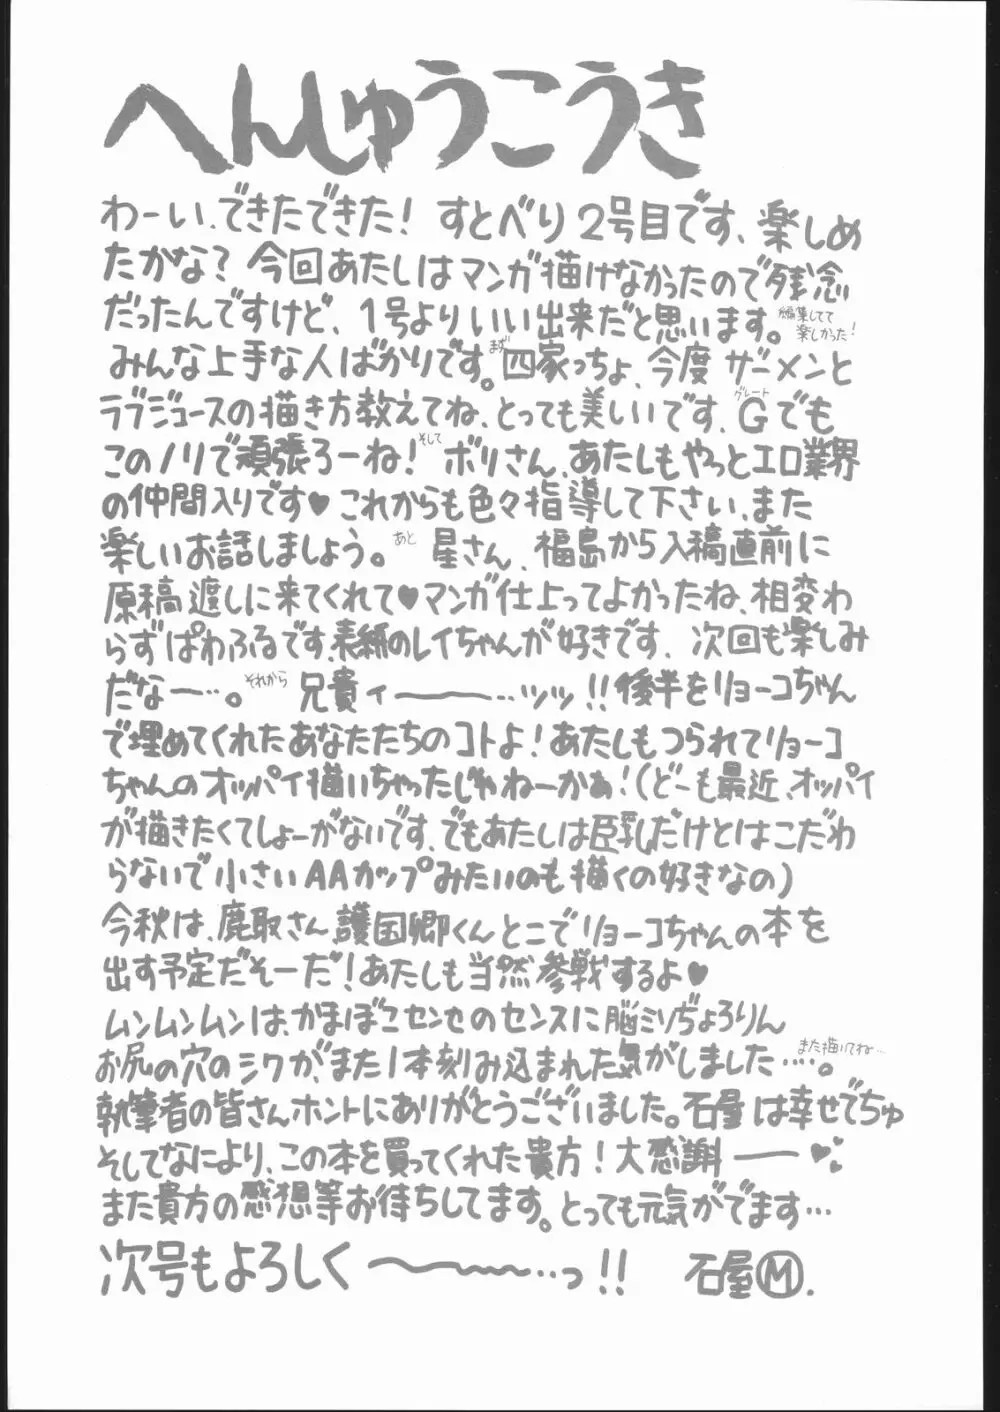 へんしゅうこうき
わーい、できたできた！ すとべり２号目です、楽しめ
たかな？今回あたしはマンガ描けなかったので残念
だったんですけど、１号よりいい出来だと思います。編集してて楽しかった！
みんな上手な人ばかりです。まず四家っちょ、今度ザーメンと
ラブジュースの描き方教えてね、とっても美しいです、Gグレートでも
このノリで頑張ろーね！そしてボリさん、あたしもやっとエロ業界
の仲間入りです♥これからも色々指導して下さい、また
楽しいお話しましょう。あと 星さん、福島から入稿直前に
原稿渡しに来てくれて♥マンガ仕上ってよかったね、相変わ
らずぱわふるです、表紙のレイちゃんが好きです、次回も楽しみ
だなー…。それから 兄貴ィ――――…ッッ！！後半をリョーコちゃん
で埋めてくれたあなたたちのコトよ！あたしもつられてリョーコ
ちゃんのオッパイ描いちゃったじゃねーかぁ！（どーも最近、オッパイ
が描きたくてしょーがないです、でもあたしは巨乳だけとはこだわ
らないで小さいAAカップみたいのも描くの好きなの）
今秋は、鹿取さん、護国卿くんとこでリョーコちゃんの本を
出す予定だそーだ！あたしも当然参戦するよ♥
ムンムンムンは、かまぼこセンセのセンスに脳ミソぢょろりん
お尻の穴のシワが、また１本刻み込まれた気がしました…。また描いてね…
執筆者の皆さんホントにありがとうございました。石屋は幸せでちゅ
そしてなにより、この本を買ってくれた貴方！大感謝――♥♥
また貴方の感想等お待ちしてます。とっても元気がでます…
次号もよろしく～～～…っ！！ 石屋Ⓜ.